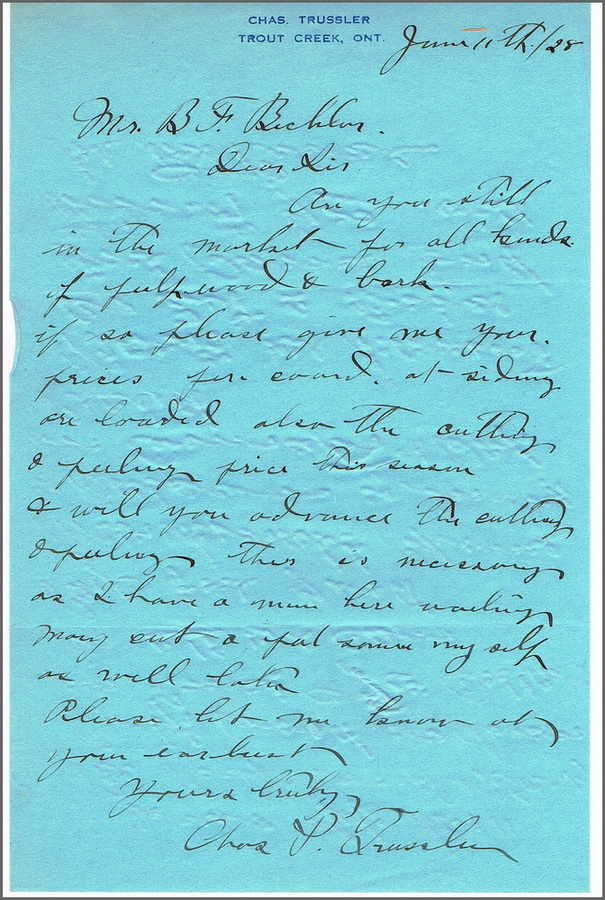 CHAS. TRUSSLER
TROUT CREEK, ONT.
June 11th./28
Mr. B F. Bechlor.
Dear Sir
Are you still
in the market for all kinds.
of pulpwood & bark.
if so please give me your.
prices per coard. at siding
are loaded also the cutting
& peeling price this season
& will you advance the cutting
& peeling this is necessary
as I have a man here waiting
may cut a put some my self
as well later
Please let me know at
your earliest
Yours truly
Chas P. Trussler